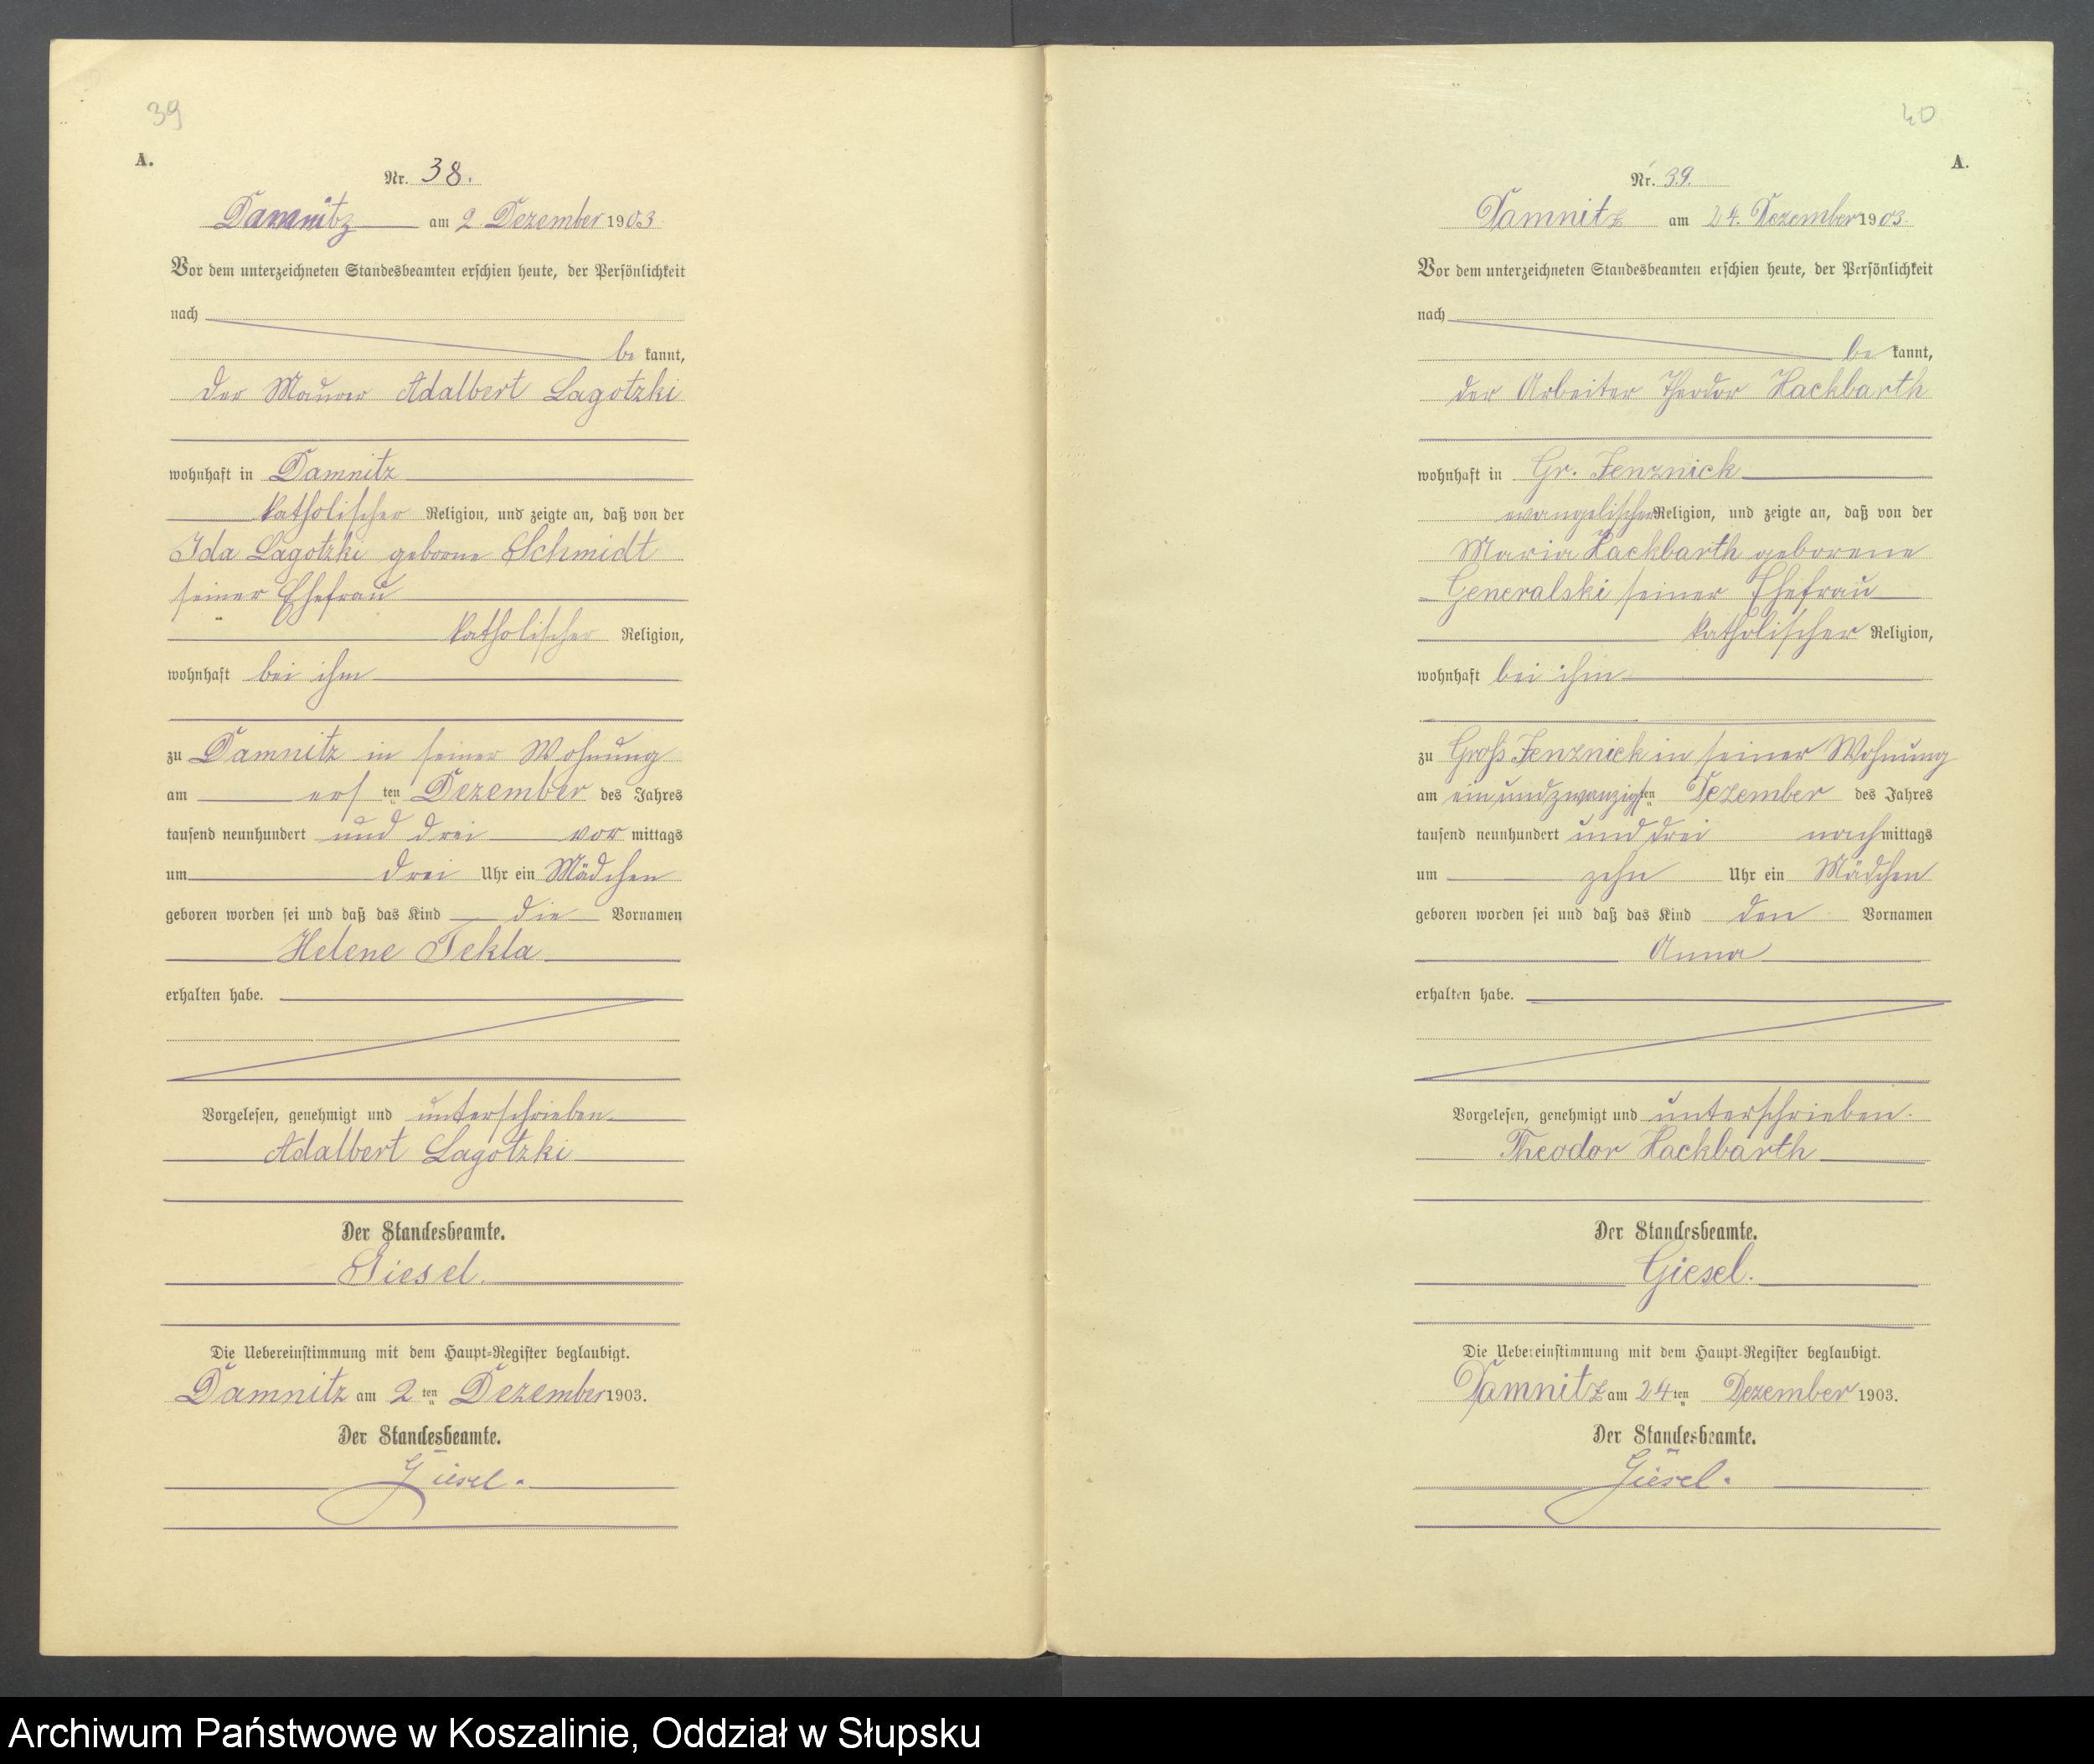 39
A.
Nr. 38.
Damnitz am 2 Dezember 1903
Vor dem unterzeichneten Standesbeamten erschien heute, der Persönlichkeit
nach
be kannt,
der Maurer Adalbert Lagotzki
wohnhaft in Damnitz
katholischer Religion, und zeigte an, daß von der
Ida Lagotzki geborne Schmidt
seiner Ehefrau
katholischer Religion,
wohnhaft bei ihm
zu Damnitz in seiner Wohnung
am ersten Dezember des Jahres
tausend neunhundert und drei vor mittags
um drei Uhr ein Mädchen
geboren worden sei und daß das Kind die Vornamen
Helene Tekla
erhalten habe.
Vorgelesen, genehmigt und unterschrieben
Adalbert Lagotzki
Der Standesbeamte.
Giesel.
Die Uebereinstimmung mit dem Haupt-Register beglaubigt.
Damnitz am 2 ten Dezember 1903.
Der Standesbeamte.
Giesel.
40
A.
Nr. 39.
Damnitz am 24. Dezember 1903.
Vor dem unterzeichneten Standesbeamten erschien heute, der Persönlichkeit
nach
be kannt,
der Arbeiter Theodor Hackbarth
wohnhaft in Gr. Jenznick
evangelischer Religion, und zeigte an, daß von der
Maria Hackbarth geborene
Generalski seiner Ehefrau
katholischer Religion,
wohnhaft bei ihm
zu Groß Jenznick in seiner Wohnung
am einundzwanzigsten Dezember des Jahres
tausend neunhundert und drei nach mittags
um zehn Uhr ein Mädchen
geboren worden sei und daß das Kind den Vornamen
Anna
erhalten habe.
Vorgelesen, genehmigt und unterschrieben.
Theodor Hackbarth
Der Standesbeamte.
Giesel.
Die Uebereinstimmung mit dem Haupt-Register beglaubigt.
Damnitz am 24 ten Dezember 1903.
Der Standesbeamte.
Giesel.
Archiwum Państwowe w Koszalinie, Oddział w Słupsku